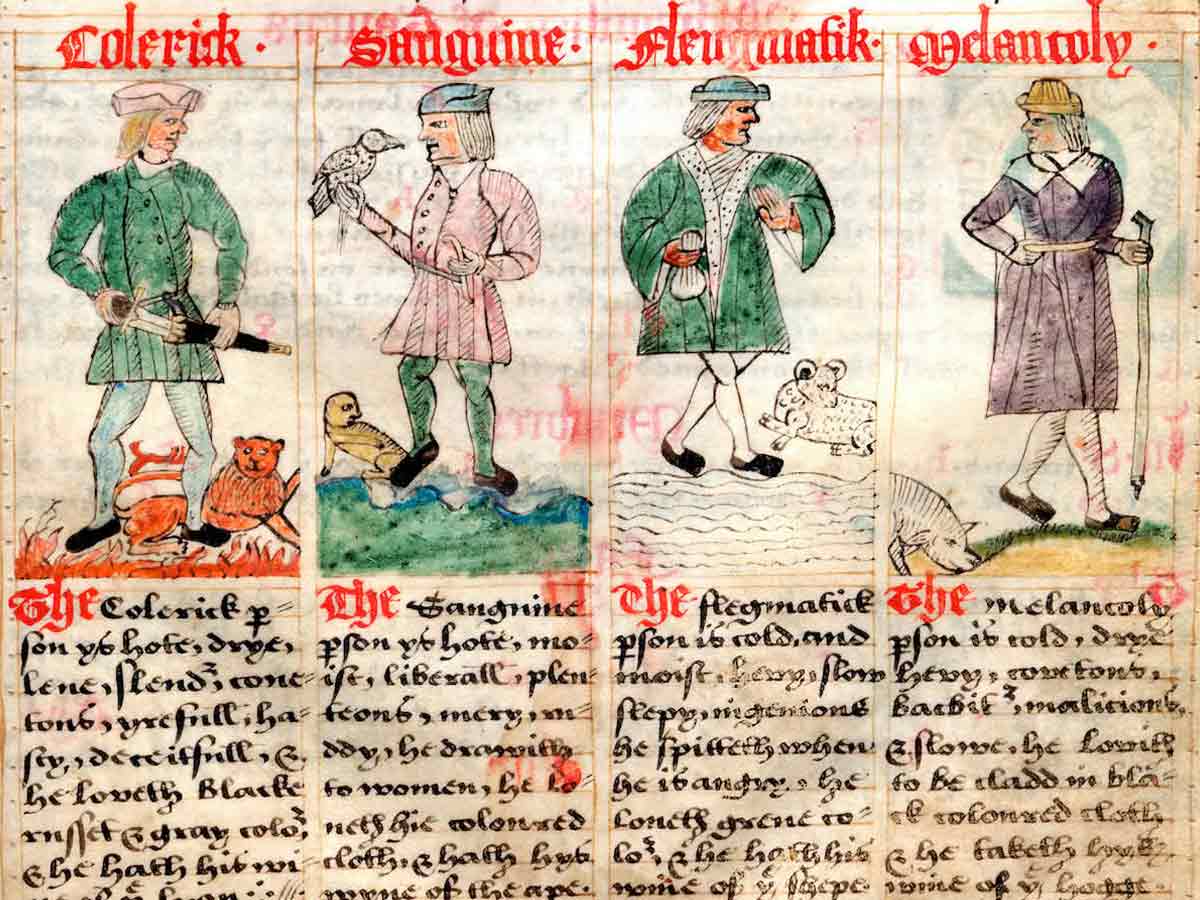 Colerick ·
Sanguine ·
Fleugmatik ·
Melancoly ·
The Colerick p=
son ys hote, drye,
lene, slend, cove=
tous, yrefull, ha=
sty, deceitfull, &
he loveth Blacke
russet & gray colo
& he hath his wi=
The Sanguine
pson ys hote, mo=
ist, liberall, plen=
teous, mery, ru=
ddy, he drawith
to women, he lo=
veth hie coloured
cloth, & hath hys
wyne of the ape ·
The flegmatick
pson is cold, and
moist, hevy, slow
slepy, ingenious
he spitteth when
he is angry, he
loveth grene co=
lo, & he hath his
wine of yͤ shepe ·
The melancoly
pson is cold, drye
hevy, covetous,
backbit, malicious,
& slowe, he lovith
to be cladd in bla=
ck coloured cloth
& he taketh hys
wine of yͤ hogge ·